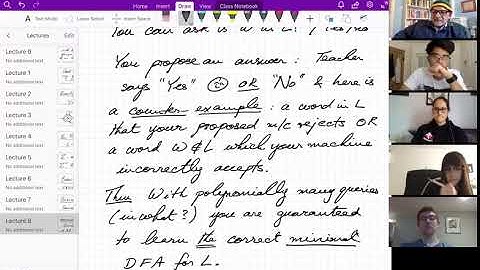 File Home Insert Draw View Class Notebook
Lectures
Lecture 0
No additional text
Lecture 1
No additional text
Lecture 2
No additional text
Lecture 3
No additional text
Lecture 4
No additional text
Lecture 5
No additional text
Lecture 6
No additional text
Lecture 7
No additional text
Lecture 8
No additional text
You can ask is w in L? / Yes/No
You propose an answer: Teacher
says "Yes" OR "No" & here is
a counter example: a word in L
that your proposed m/c rejects OR
a word w∉L which your machine
incorrectly accepts.
Thus With polynomially many queries
(in what?) you are guaranteed
to learn the correct minimal
DFA for L.